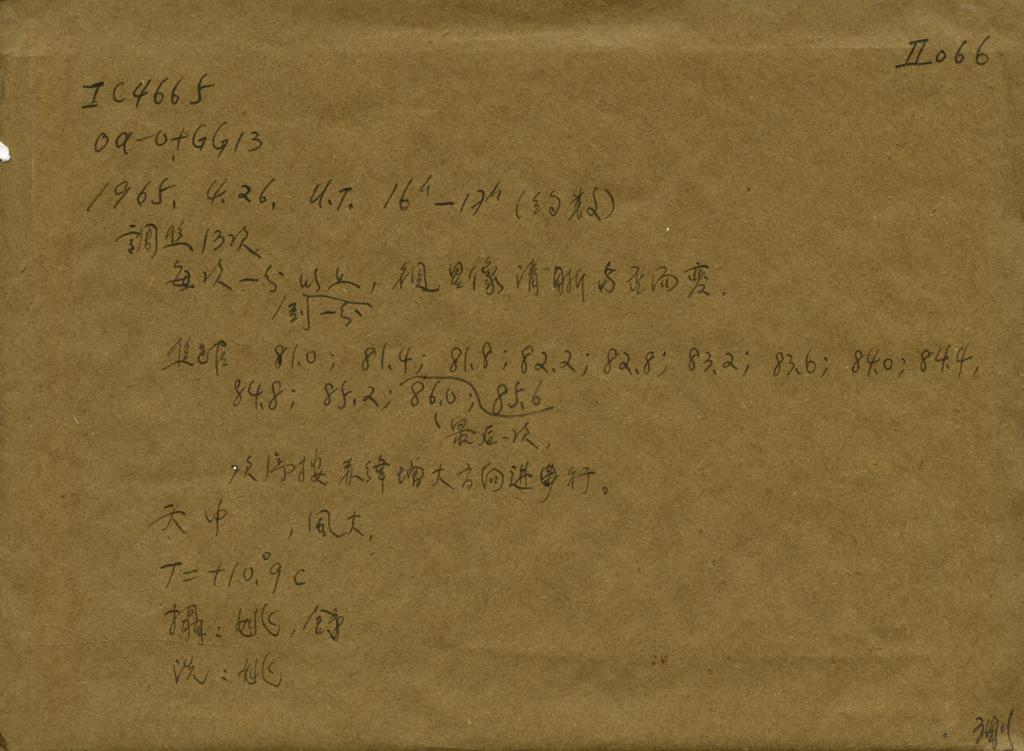 II066
IC4665
0a-0+GG13
1965. 4. 26. U.T. 16h-17h (约数)
調焦13次
每次一分以上, 視星像清晰与否而变.
到一分
焦距 81.0; 81.4; 81.8; 82.2; 82.8; 83.2; 83.6; 84.0; 84.4,
84.8; 85.2; 86.0; 85.6
最后一次.
次序按赤緯增大方向进行。
天中 , 風大,
T=+10.°9 c
攝: 姚, 余
洗: 姚
测